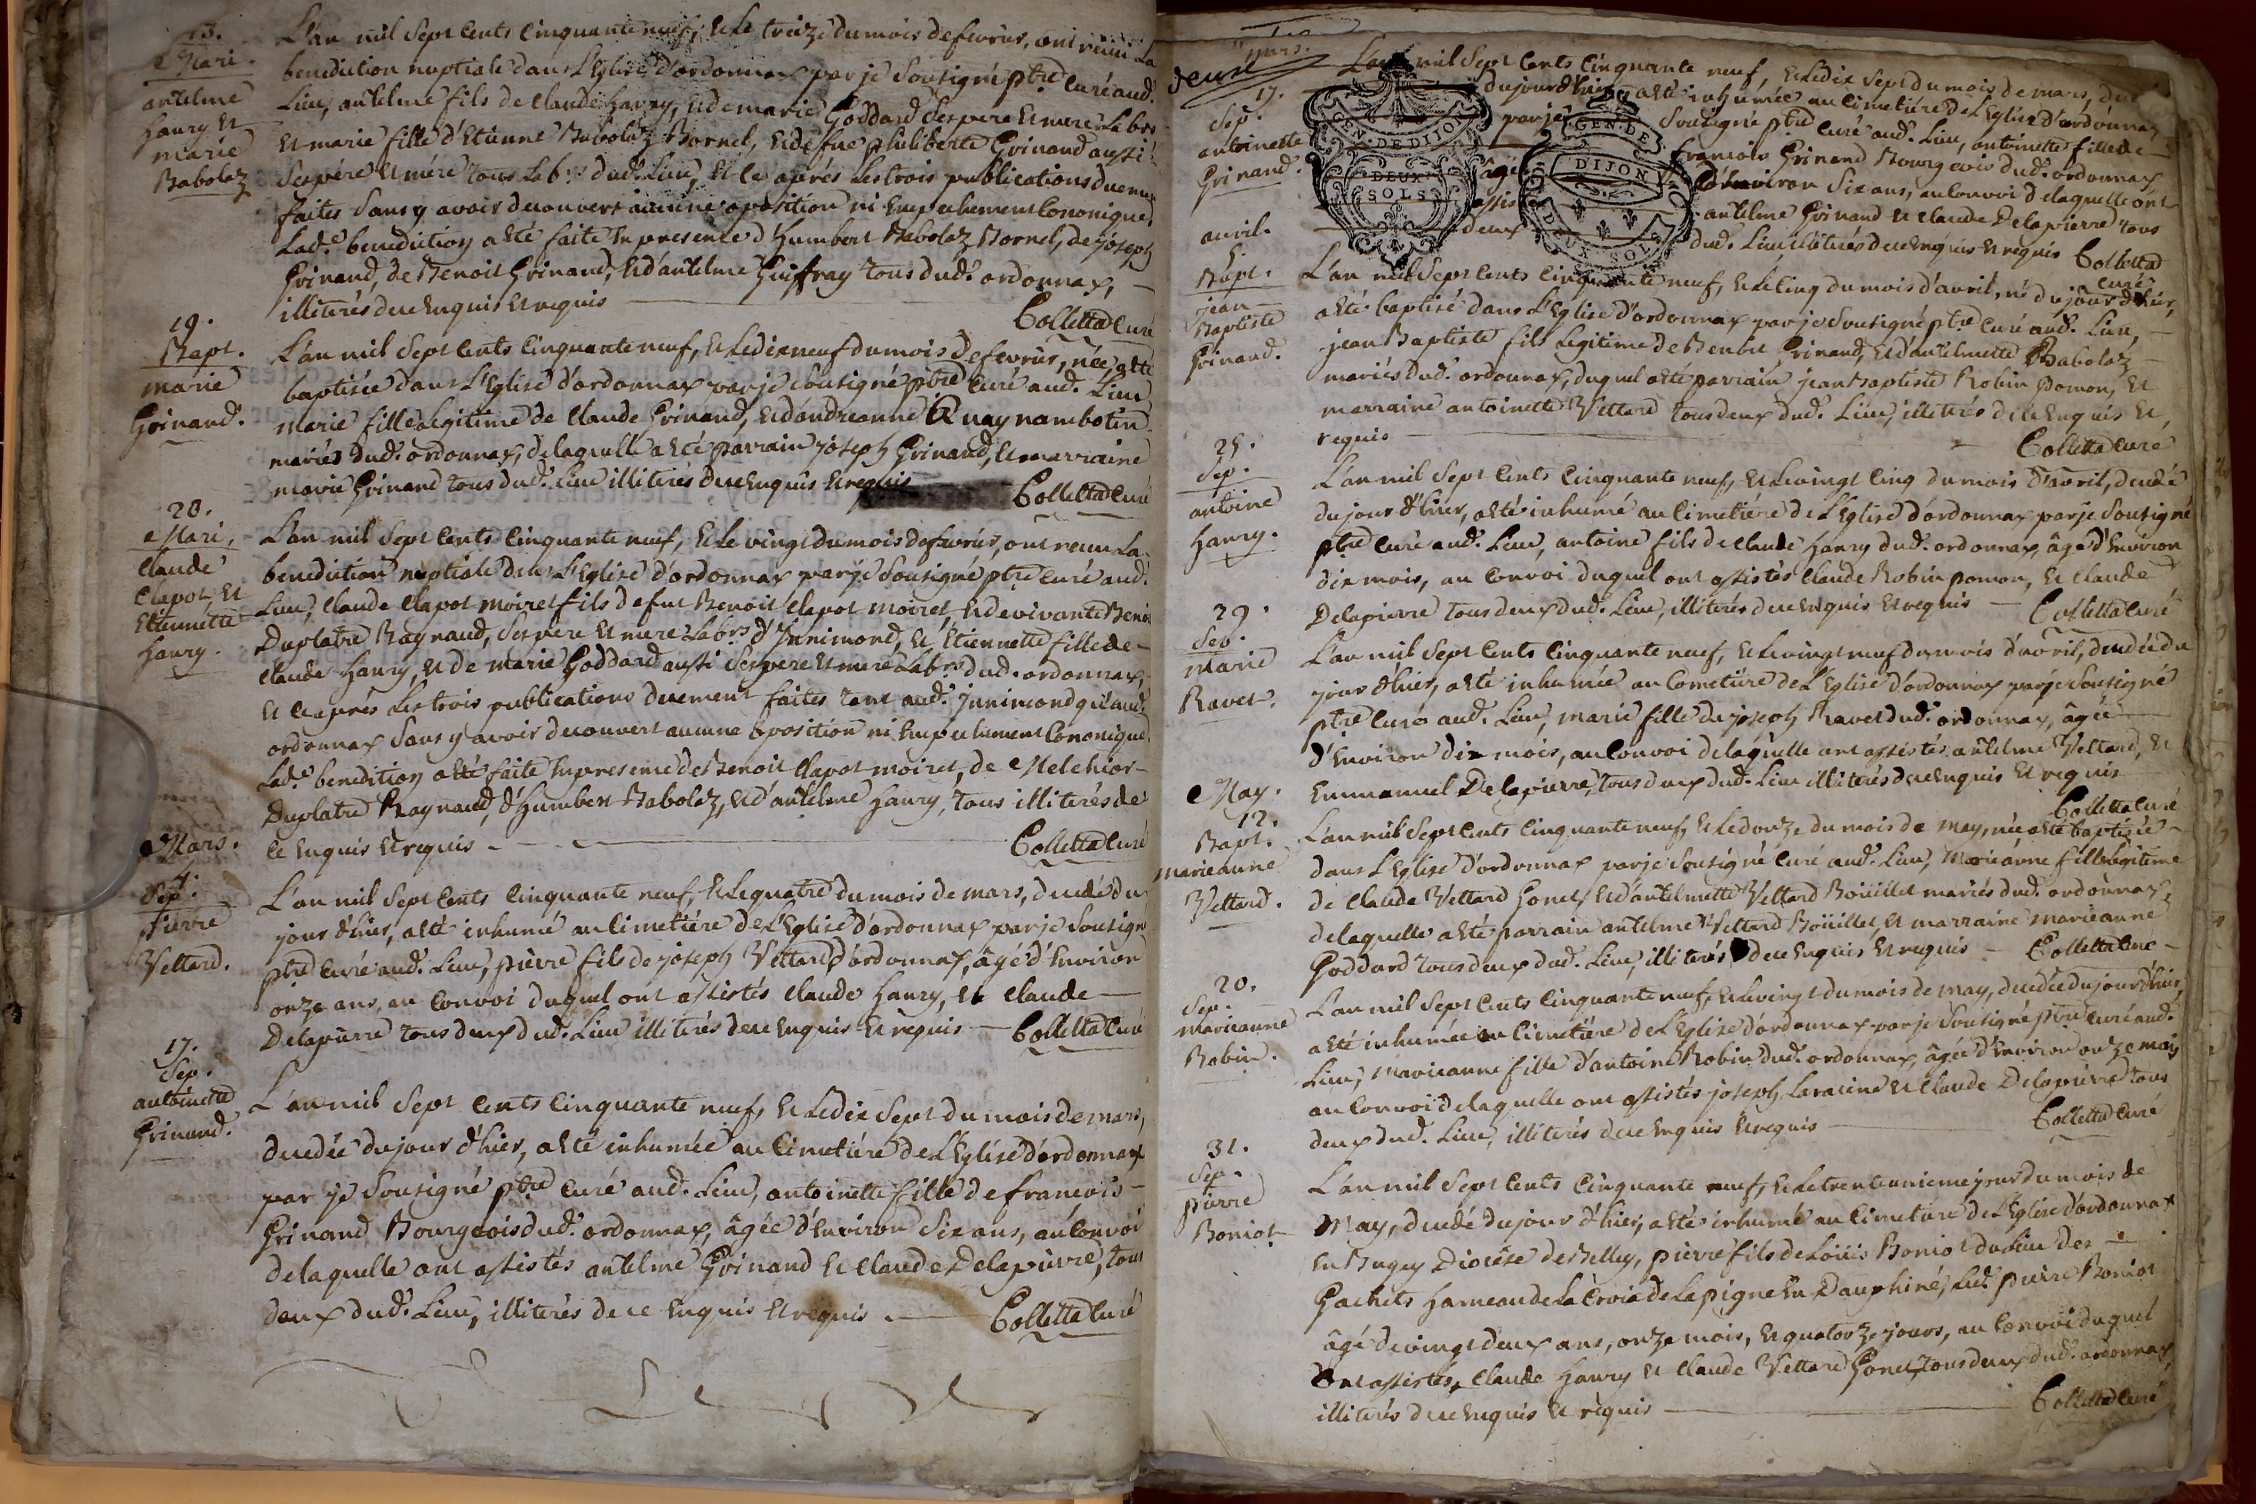 13.
Mari.
antelme
haury et
marie
Babolaz
L'an mil Sept Cents Cinquante neuf, et Le treize du mois de fevrier, ont recu La
benediction nuptiale dans L'Eglise d'ordonnax par je Sousigné ptre Curé aud.
Lieu, antelme fils de Claude haury, et de marie Goddard Ses pere et mere Labrs
et marie fille d'Etienne Babolaz Bornel, et de fue philiberte Grinand aussi
Ses pére et mére tous Labrs dud. Lieu, et ce aprés Les trois publications duemen
faites Sans y avoir decouvert aucune oposition ni Empechement Cononique,
Lade benediction a eté faite En presence d'humbert Babolaz Bornel, de joseph
Grinand, de Benoit Grinand, et d'antelme Guiffray tous dud. ordonnax,
illiterés de ce Enquis et requis
Colletta Curé
19.
Bapt.
marie
Grinand.
L'an mil Sept Cents Cinquante neuf, et Le dixneuf du mois de fevrier, née, a eté
baptisée dans L'Eglise d'ordonnax par je Sousigné ptre Curé aud. Lieu
marie fille Legitime de Claude Grinand, et d'andreanne Quaynambotin
mariés dud. ordonnax, de laquelle a eté parrain joseph Grinand, et marraine
marie Grinand tous dud. Lieu illiterés de ce Enquis et requis
Colletta Curé
20.
Mari.
Claude
Clapot et
Etiennette
haury.
L'an mil Sept Cents Cinquante neuf, et Le vingt du mois de fevrier, ont recu La
benediction nuptiale dans L'Eglise d'ordonnax par je Sousigné ptre Curé aud.
Lieu, Claude Clapot moiret fils de fut Benoit Clapot moiret, et de vivante Benoi
Duplatre Raynaud, Ses pere et mere Labrs d'Innimond, et Etiennette fille de
Claude haury, et de marie Goddard aussi Ses pere et mere Labrs dud. ordonnax,
et ce aprés Les trois publications duement faites tant aud. Innimond qu'aud.
ordonnax Sans y avoir decouvert aucune oposition ni Empechement Cononique
Lade benedition a eté faite En presence de Benoit Clapot moiret, de Melchior
Duplatre Raynaud, d'humbert Babolaz, et d'antelme haury, tous illiterés de
ce Enquis et requis
Colletta Curé
Mars.
4.
Sep.
Pierre
Vettard.
L'an mil Sept Cents Cinquante neuf, et Le quatre du mois de mars, decedé du
jour d'hier, a eté inhumé au Cimetiére de L'Eglise d'ordonnax par je Sousigné
ptre Curé aud. Lieu, pierre fils de joseph Vettard d'ordonnax, âgé d'Environ
onze ans, au Convoi duquel ont assistés Claude haury, et Claude
Delapierre tous deux dud. Lieu illiterés de ce Enquis et requis
Colletta Curé
17.
Sep.
antoinette
Grinand.
L'an mil Sept Cents Cinquante neuf, et Le dix Sept du mois de mars,
decedée du jour d'hier, a eté inhumée au Cimetiére de L'Eglise d'ordonnax
par je Sousigné ptre Curé aud. Lieu, antoinette fille de francois
Grinand Bourgeois dud. ordonnax, âgée d'Environ Six ans, au Convoi
de laquelle ont assistés antelme Grinand et Claude Delapierre, tous
deux dud. Lieu, illiterés de ce Enquis et requis
Colletta Curé
mars.
17.
Sep.
antoinette
Grinand.
L'an mil Sept Cents Cinquante neuf, et Le dix Sept du mois de mars,
du jour d'hier, a eté inhumée au Cimetiére de L'Eglise d'ordonnax
par je Sousigné ptre Curé aud. Lieu, antoinette fille de
francois Grinand Bourgeois dud. ordonnax,
âgée d'Environ Six ans, au Convoi de laquelle ont
assistés antelme Grinand et Claude Delapierre tous
deux dud. Lieu, illiterés de ce Enquis et requis Colletta
Curé
GEN. DE DIJON
DEUX
SOLS
GEN. DE
DIJON
DEUX SOLS
avril.
5.
Bapt.
jean
Baptiste
Grinand.
L'an mil Sept Cents Cinquante neuf, et Le Cinq du mois d'avril, né du jour d'hier,
a eté baptisé dans L'Eglise d'ordonnax par je Sousigné ptre Curé aud. Lieu,
jean Baptiste fils Legitime de Benoit Grinand, et d'antelmette Babolaz
mariés dud. ordonnax, duquel a eté parrain jean Baptiste Robin pomon, et
marraine antoinette Vettard tous deux dud. Lieu, illiterés de ce Enquis et
requis
Colletta Curé
25.
Sep.
antoine
haury.
L'an mil Sept Cents Cinquante neuf, et Le vingt Cinq du mois d'avril, decedé
du jour d'hier, a eté inhumé au Cimetiére de L'Eglise d'ordonnax par je Sousigné
ptre Curé aud. Lieu, antoine fils de Claude haury dud. ordonnax, âgé d'Environ
dix mois, au Convoi duquel ont assistés Claude Robin pomon, et Claude
Delapierre tous deux dud. Lieu, illiterés de ce Enquis et requis
Colletta Curé
29.
Sep.
marie
Ravet.
L'an mil Sept Cents Cinquante neuf, et Le vingt neuf du mois d'avril, decedée du
jour d'hier, a eté inhumée au Cemetiére de L'Eglise d'ordonnax par je Sousigné
ptre Curé aud. Lieu, marie fille de joseph Ravet dud. ordonnax, âgée
d'Environ dix mois, au Convoi de laquelle ont assistés antelme Vettard, et
Emmanuel Delapierre, tous deux dud. Lieu illiterés de ce Enquis et requis
Colletta Curé
May.
12.
Bapt.
marieanne
Vettard.
L'an mil Sept Cents Cinquante neuf, et Le douze du mois de may, née a eté baptisée
dans L'Eglise d'ordonnax par je Sousigné Curé aud. Lieu, Marieanne fille Legitime
de Claude Vettard Gonet, et d'antelmette Vettard Boüillet mariés dud. ordonnax,
de laquelle a eté parrain antelme Vettard Boüillet, et marraine marieanne
Goddard tous deux dud. Lieu, illiterés de ce Enquis et requis
Colletta Curé
20.
Sep.
marieanne
Robin.
L'an mil Sept Cents Cinquante neuf, et Le vingt du mois de may, decedée du jour d'hier,
a eté inhumée au Cimetiére de L'Eglise d'ordonnax par je Sousigné ptre Curé aud.
Lieu, marieanne fille d'antoine Robin dud. ordonnax, âgée d'Environ onze mois
au Convoi de laquelle ont assistés joseph Laracine et Claude Delapierre tous
deux dud. Lieu, illiterés de ce Enquis et requis
Colletta Curé
31.
Sep.
pierre
Boniot
L'an mil Sept Cents Cinquante neuf, et Le trente unieme jour du mois de
May, decedé du jour d'hier, a eté inhumé au Cimetiére de L'Eglise d'ordonnax
En Bugey Diocése de Belley, pierre fils de Loüis Boniot du Lieu des
Gachets hameau de La Croix de Lapigne En Dauphiné, Led. pierre Boniot
âgé de vingt deux ans, onze mois, et quatorze jours, au Convoi duquel
Ont assistés, Claude haury et Claude Vettard Gonet, tous deux dud. ordonnax,
illiterés de ce Enquis et requis
Colletta Curé